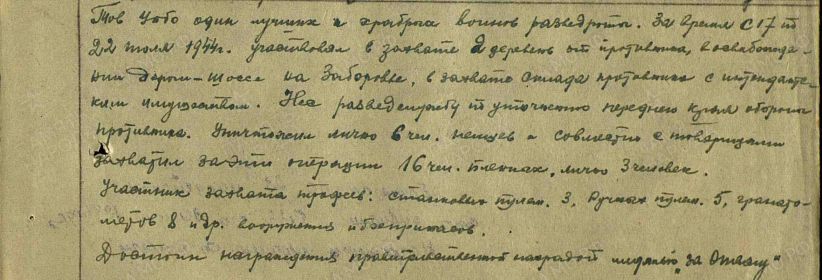 Тов Уабо один лучших и храбрых воинов разведроты. За время с 17 по
22 июля 1944г. участвовал в захвате 2 деревень от противника, в освобожде-
нии дороги-шоссе на Заборовье, в захвате склада противника с интендантс-
ким имуществом. Нес разведслужбу по уточнению переднего края обороны
противника. Уничтожил лично 6 чел. немцев и совместно с товарищами
захватил за эти операции 16 чел. пленных, лично 3 человек.
Участник захвата трофеев: станковых пулем. 3, ручных пулем. 5, гранато-
метов 8 и др. вооружения и боеприпасов.
Достоин награждения правительственной наградой медалью "за Отвагу"